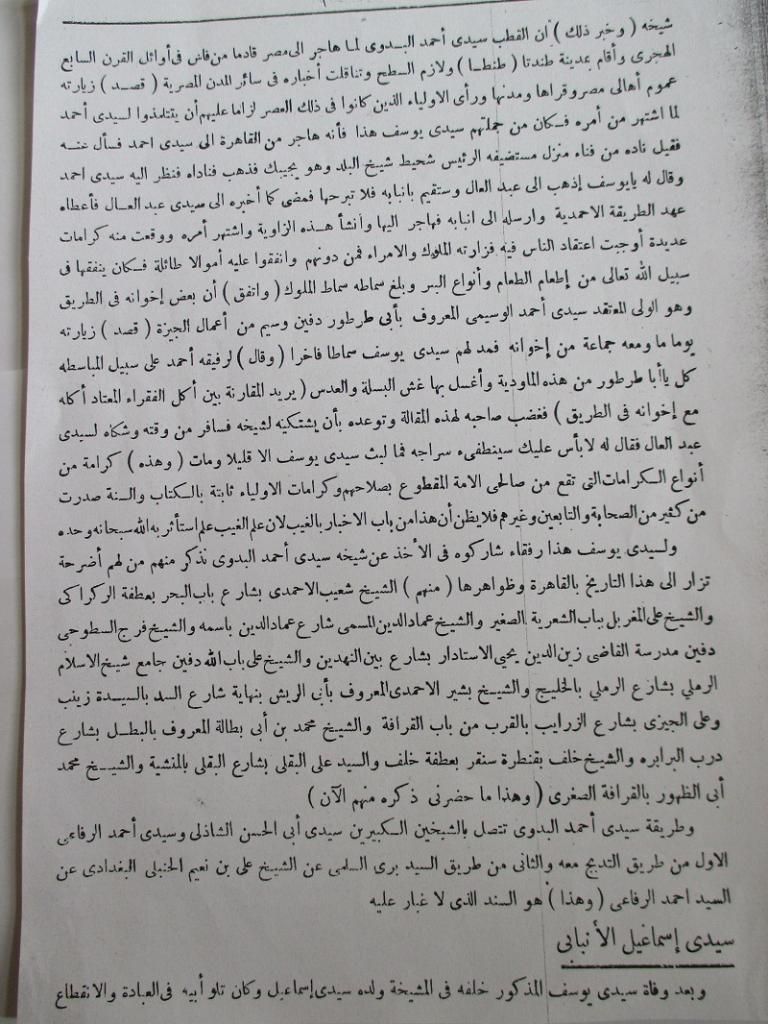 شيخه ( وخبر ذلك ) أن القطب سيدى أحمد البدوى لما هاجر الى مصر قادما من فاس فى أوائل القرن السابع
الهجرى وأقام بمدينة طندتا ( طنطا ) ولازم السطح وتناقلت أخباره فى سائر المدن المصرية ( قصد ) زيارته
عموم أهالى مصر وقراها ومدنها ورأى الاولياء الذين كانوا فى ذلك العصر لزاما عليهم أن يتتلمذوا لسيدى أحمد
لما اشتهر من أمره فكان من جملتهم سيدى يوسف هذا فأنه هاجر من القاهرة الى سيدى احمد فسأل عنه
فقيل ناده من فناء منزل مستضيفه الرئيس شحيط شيخ البلد وهو يجيبك فذهب فناداه فنظر اليه سيدى احمد
وقال له يايوسف إذهب الى عبد العال وستقيم بانبابه فلا تبرحها فمضى كما أخبره الى سيدى عبد العال فأعطاه
عهد الطريقة الاحمدية وارسله الى انبابه فهاجر اليها وأنشأ هذه الزاوية واشتهر أمره ووقعت منه كرامات
عديدة أوجبت اعتقاد الناس فيه فزارته الملوك والامراء فمن دونهم وانفقوا عليه أموالا طائلة فكان ينفقها فى
سبيل الله تعالى من إطعام الطعام وأنواع البر وبلغ سماطه سماط الملوك ( واتفق ) أن بعض إخوانه فى الطريق
وهو الولى المعتقد سيدى أحمد الوسيمى المعروف بأبى طرطور دفين وسيم من أعمال الجيزة ( قصد ) زيارته
يوما ما ومعه جماعة من إخوانه فمد لهم سيدى يوسف سماطا فاخرا ( وقال ) لرفيقه أحمد على سبيل المباسطه
كل ياأبا طرطور من هذه الماودية وأغسل بها غش البسلة والعدس ( يريد المقارنة بين أكل الفقراء المعتاد أكله
مع إخوانه فى الطريق ) فغضب صاحبه لهذه المقالة وتوعده بأن يشتكيه لشيخه فسافر من وقته وشكاه لسيدى
عبد العال فقال له لابأس عليك سينطفىء سراجه فما لبث سيدى يوسف الا قليلا ومات ( وهذه ) كرامة من
أنواع الكرامات التى تقع من صالحى الامة المقطوع بصلاحهم وكرامات الاولياء ثابتة بالكتاب والسنة صدرت
من كثير من الصحابة والتابعين وغيرهم فلا يظن أن هذا من باب الاخبار بالغيب لان علم الغيب علم استأثر به الله سبحانه وحده
ولسيدى يوسف هذا رفقاء شاركوه فى الأخذ عن شيخه سيدى أحمد البدوى نذكر منهم من لهم أضرحة
تزار الى هذا التاريخ بالقاهرة وظواهرها ( منهم ) الشيخ شعيب الاحمدى بشارع باب البحر بعطفة الركراكى
والشيخ على المغربل بباب الشعرية الصغير والشيخ عماد الدين المسمى شارع عماد الدين باسمه والشيخ فرج السطوحى
دفين مدرسة القاضى زين الدين يحيى الاستادار بشارع بين النهدين والشيخ على باب الله دفين جامع شيخ الاسلام
الرملي بشارع الرملي بالخليج والشيخ بشير الاحمدى المعروف بأبى الريش بنهاية شارع السد بالسيدة زينب
وعلى الجيزى بشارع الزرايب بالقرب من باب القرافة والشيخ محمد بن أبى بطالة المعروف بالبطل بشارع
درب البرابره والشيخ خلف بقنطرة سنقر بعطفة خلف والسيد على البقلى بشارع البقلى بالمنشية والشيخ محمد
أبى الظهور بالقرافة الصغرى ( وهذا ما حضرنى ذكره منهم الآن )
وطريقة سيدى أحمد البدوى تتصل بالشيخين الكبيرين سيدى أبى الحسن الشاذلى وسيدى أحمد الرفاعى
الاول من طريق التدبج معه والثانى من طريق السيد برى السلمى عن الشيخ على بن نعيم الحنبلى البغدادى عن
السيد احمد الرفاعى ( وهذا ) هو السند الذى لا غبار عليه
سيدى إسماعيل الأنبابى
وبعد وفاة سيدى يوسف المذكور خلفه فى المشيخة ولده سيدى إسماعيل وكان تلو أبيه فى العبادة والانقطاع